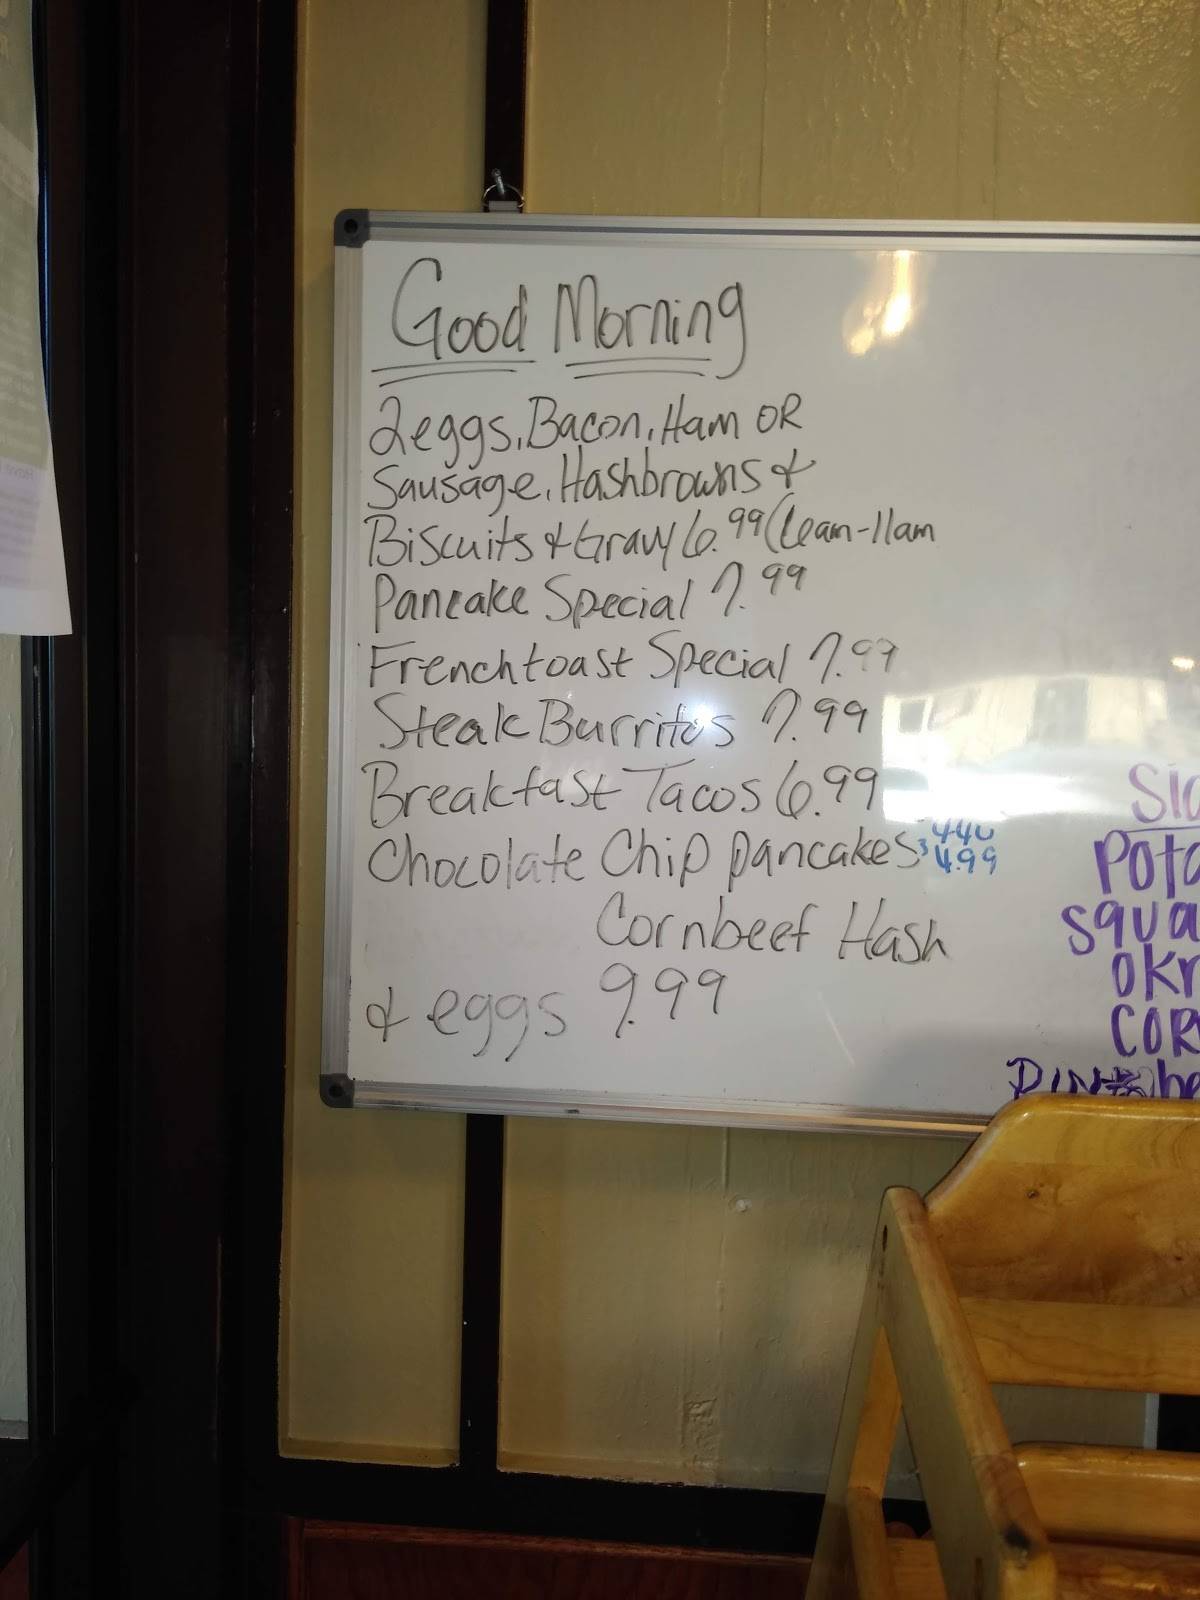 Good Morning
2eggs, Bacon, Ham OR
Sausage, Hashbrowns &
Biscuits & Gravy 6.99 (6am-11am
Pancake Special 7.99
Frenchtoast Special 7.99
Steak Burritos 7.99
Breakfast Tacos 6.99
Chocolate Chip pancakes
3 4.99
Cornbeef Hash
& eggs 9.99
Sid
Pota
squa
okr
CORN
PINto be